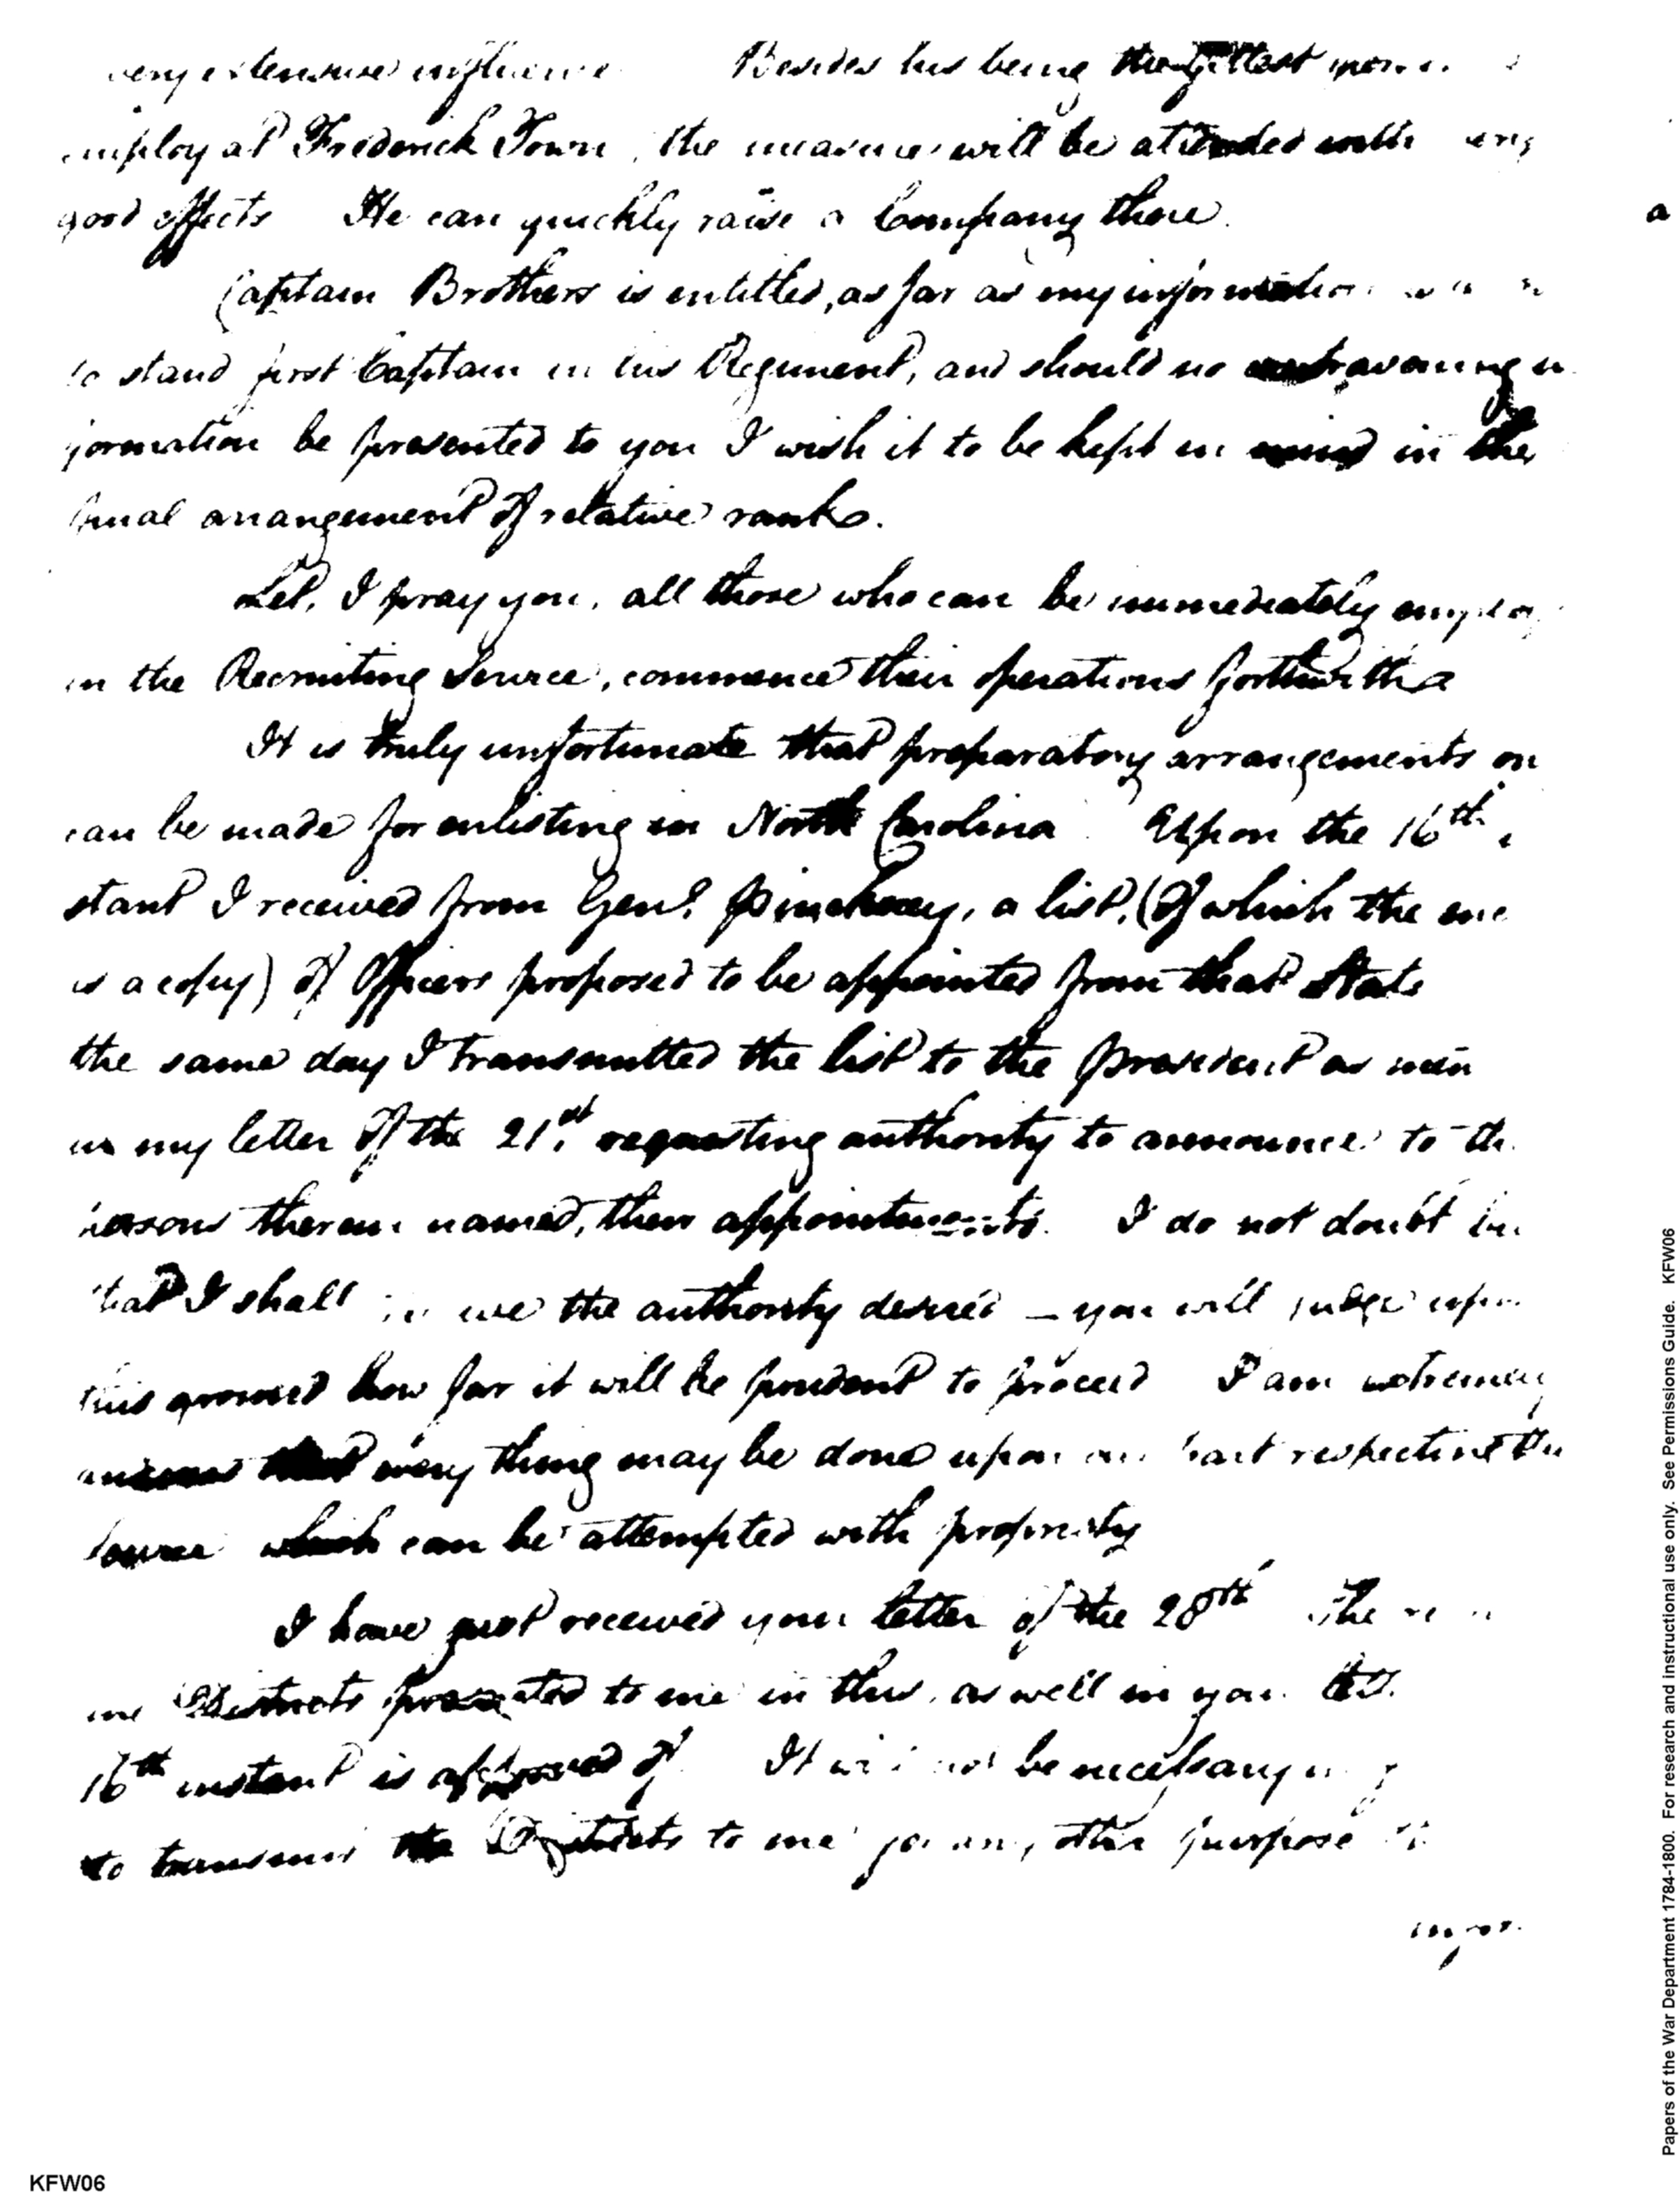 very extensive influence Besides his being the fittest
employ at Frederick Town, the measure will be attended with
good effects He can quickly raise a Company there.
a
Captain Brothers is entitled, as far as my information
to stand first Captain in his Regiment, and should no contravening in
formation be presented to you I wish it to be kept in mind in the
final arrangement of relative rank.
Let, I pray you, all those who can be immediately employ
in the Recruiting Service, commence their operations forthwith
It is truly unfortunate that preparatory arrangements on
can be made for enlisting in North Carolina. Upon the 16th
stant I received from Genl. Pinckney, a list, (of which the
is a copy) of Officers proposed to be appointed from that State
the same day I transmitted the list to the President as men
in my letter of the 21st. requesting authority to announce to the
persons therein named, their appointments. I do not doubt
that I shall the authority desired – you will judge upon
this ground how far it will be prudent to proceed I am extremely
anxious that every thing may be done upon our part respecting the
source which can be attempted with propriety
I have just received your letter of the 28th The
Districts presented to me in this, as well in your
16th instant is approved of. It will not be necessary
to transmit the Districts to me for any other purpose
KFW06
Papers of the War Department 1784-1800. For research and instructional use only. See Permissions Guide. KFW06